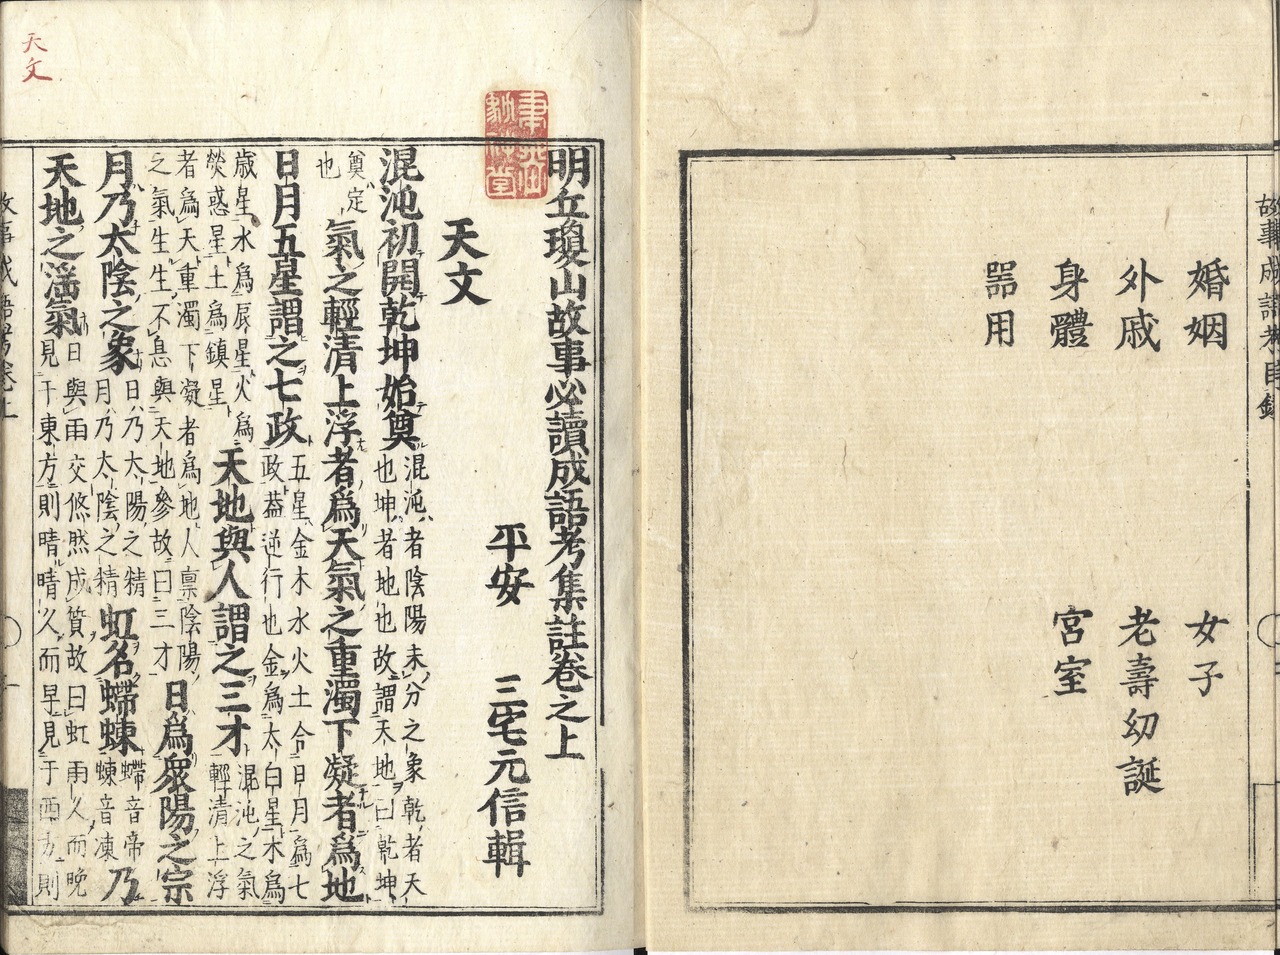 故事成語考目錄
婚姻 女子
外戚 老壽幼誕
身體 宮室
器用
天文
明丘瓊山故事必讀成語考集註卷之上
平安 三宅元信輯
天文
混沌初開乾坤始奠混沌者陰陽未分之象乾者天也坤者地也故謂天地曰乾坤
奠定也氣之輕清上浮者爲天氣之重濁下凝者爲地
日月五星謂之七政五星金木水火土合日月爲七政蓋逆行也金爲太白星木爲
歲星水爲辰星火爲熒惑星土爲鎮星天地與人謂之三才混沌之氣輕清上浮
者爲天重濁下凝者爲地人禀陰陽之氣生生不息與天地參故曰三才日爲衆陽之宗
月乃太陰之象日乃太陽之精月乃太陰之精虹名螮蝀螮音帝蝀音凍乃
天地之淫氣日與雨交倏然成質故曰虹雨久而晚見于東方則晴晴久而早見于西方則
故事成語考卷上